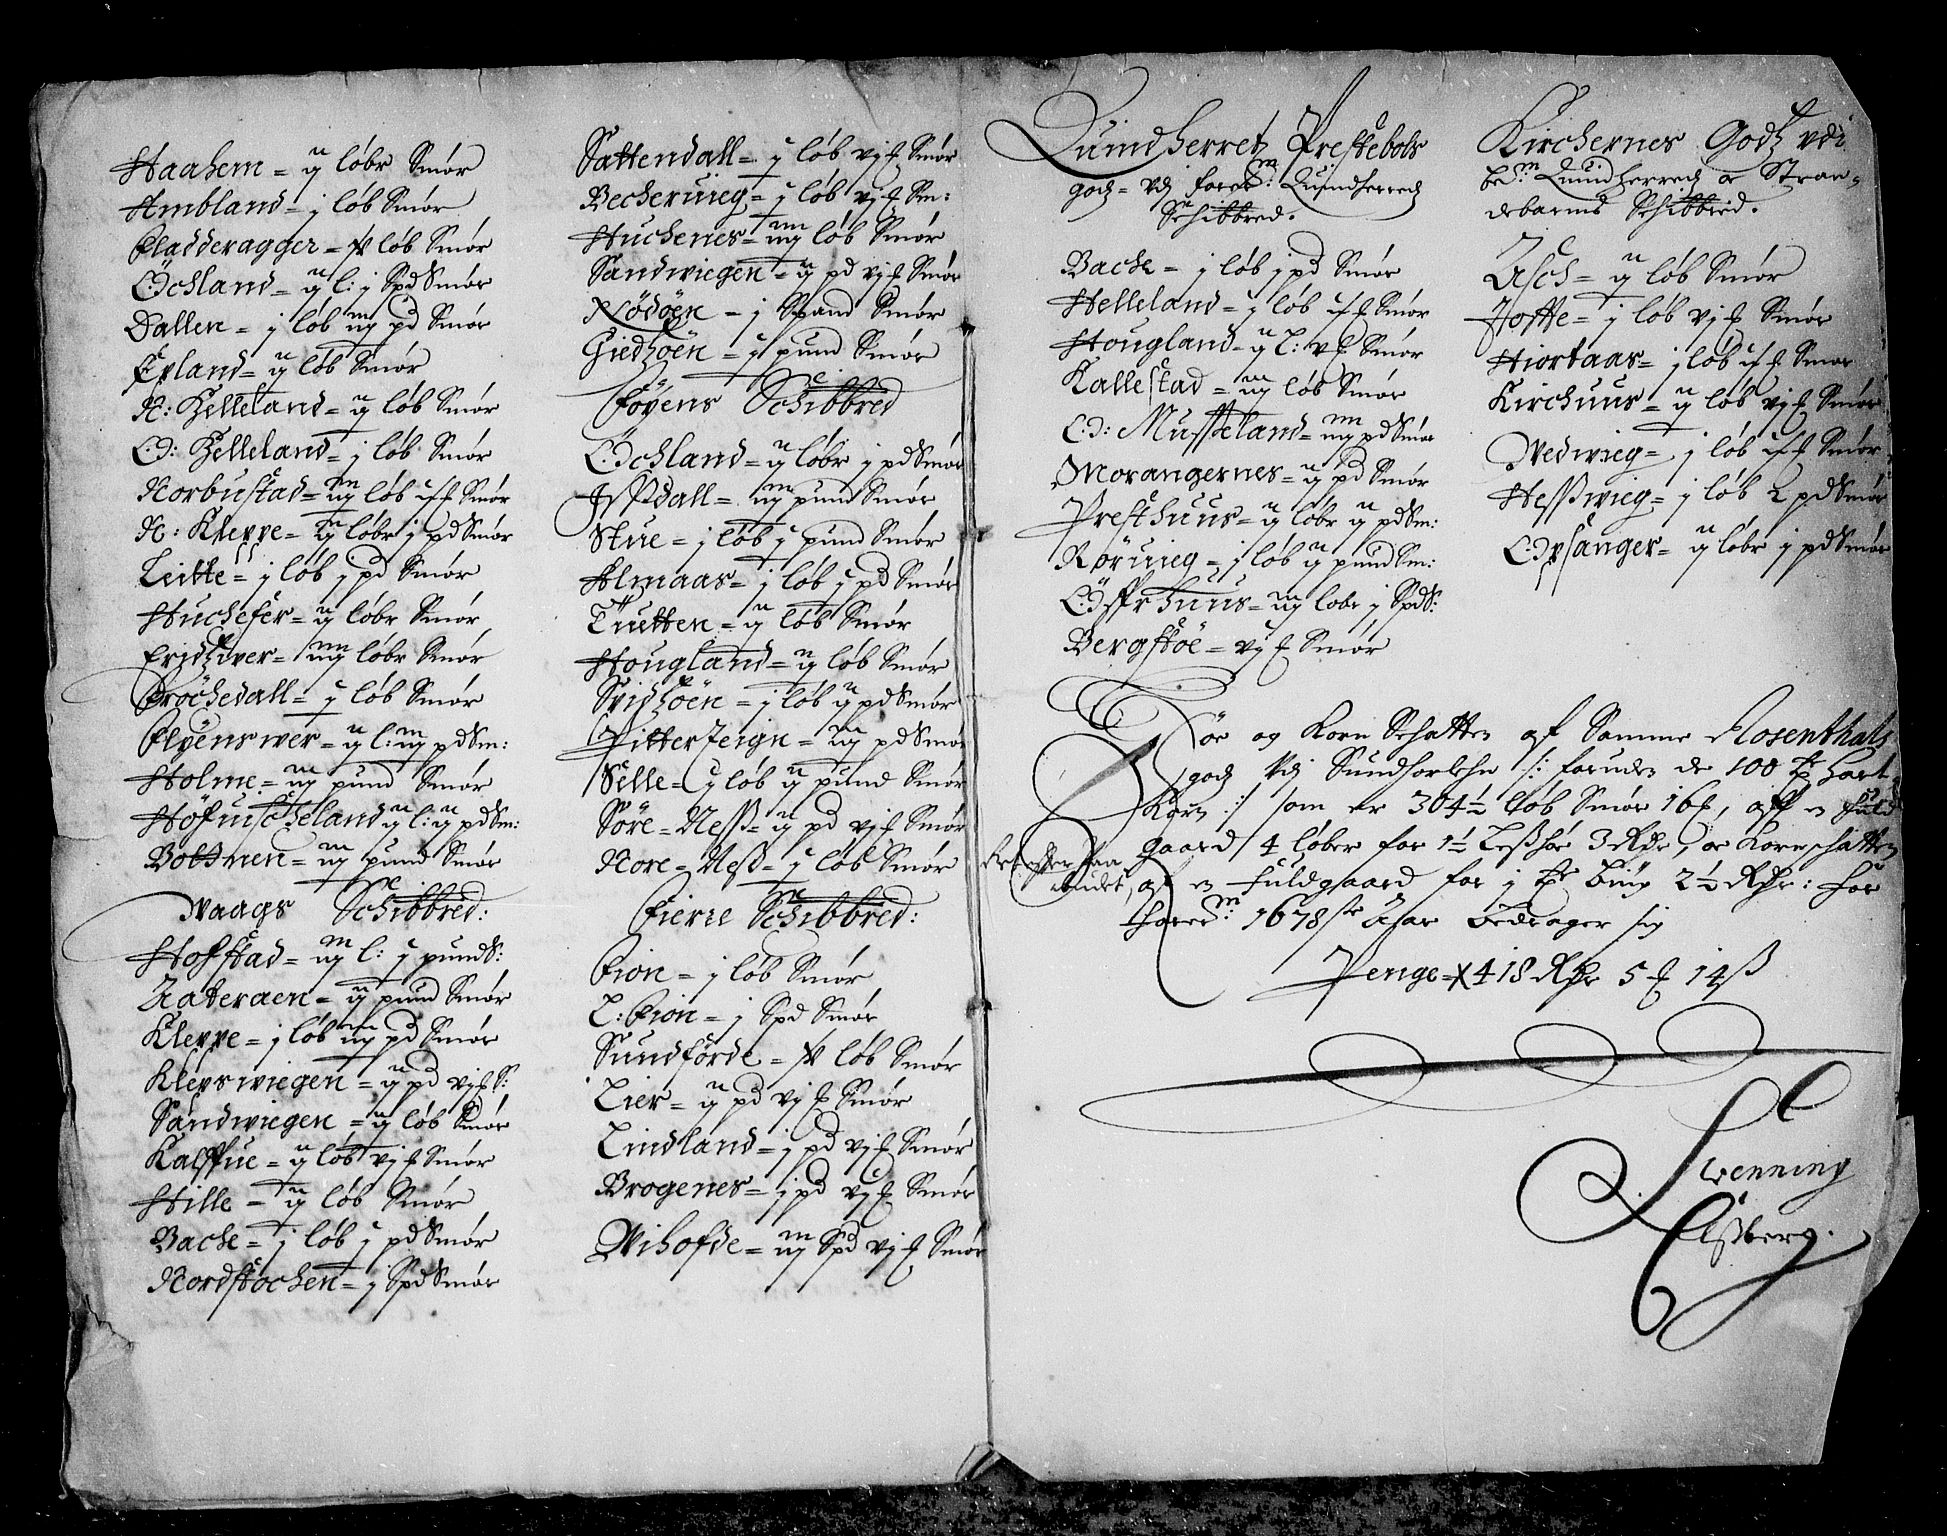 Haahem = ij løbr Smør
Ambland = j løb Smør
Fladderagger = løb Smør
Ochland = ij l: j Spd Smør
Dallen = j løb iij pd Smør
Epland = ij løb Smør
N: Helleland = ij løb Smør
O: Helleland = j løb Smør
Norbustad = iij løb Smør
N: Kleppe = ij løbr j pd Smør
Leitte = j løb j pd Smør
Huchefer = ij løbr Smør
iiij løbr Smør
Brøchedall = j løb Smør
Elvenswer = ij l: iij pd Sm:
Holme = iij pund Smør
ij l: ij pd Sm:
iij pund Smør
Waags Schibbred:
Hofstad = iij l: j pund S:
Aateraen = ij pund Smør
Kleppe = j løb iij pd Smør
Klepswiegen = ij pd vj S:
Sandwiegen = ij løb Smør
Kalffue = ij løb vj Smør
Hille = ij løb Smør
Bache = j løb j pd Smør
Nordstochen = j Spd Smør
Sattendall = j løb vj Smør
Becheruieg = j løb vj Sm:
Huchenes = iiij løb Smør
Sandwiegen = ij pd vj Smør
Rødøen = j Spand Smør
Giedzøen = j pund Smør
Føyens Schibbred
Ochland = ij løbr j pd Smør
Issdall = iij pund Smør
Stue = j løb j pund Smør
Almaas = j løb j pd Smør
Tuetten = ij løb Smør
Hougland = ij løb Smør
Svidzøen = j løb ij pd Smør
Pitterteign = iij pd Smør
Selle = j løb ij pund Smør
Søre = Ness = ij pd vj Smør
Nore = Ness = j løb Smør
Fierre Schibbred:
Eion = j løb Smør
L: Eion = j Spd Smør
Sundførde = løb Smør
Lier = ij pd vj Smør
Lindland = j pd vj Smør
Brogenes = j pd vj Smør
Wihofde = iij Spd vj Smør
Quindherretz Prestebols
godz = vdj forbem: Quindherredz
Schibbred.
Bache = j løb j pd Smør
Helleland = j løb Smør
Hougland = ij l: Smør
Kallestad = iij løb Smør
O: Musseland = iiij pd Smør
Morangernes = ij pd Smør
Presthuus = ij løbr ij pd Sm:
Røruieg = j løb ij pund Sm:
Østrhuus = iij løbr j Spd S:
Bergstøe = vj Smør
Kirchernes Godz vdi
bem: Quindherredz oc Stran=
debarms Schibbred.
Asch = ij løb Smør
Joffe = j løb vj Smør
Hiortaas = j løb Smør
Kirchuus = ij løb vj Smør
Wedwieg = j løb Smør
Hessswieg = j løb pd Smør
Opsanger = ij løbr j pd Smør
Føe og Korn Schatten af Samme Rosenthals
godz Vdj Sundhorlehn /: foruden de 100 hart
Korn :/ som er 304½ løb Smør 16, aff en fuld
gaard / 4 løber for 1½ 3 Rdr, oc Kornschatten
af en fuldgaard for j 2½ Rdr: for
1678 Aar bedrager sig
Penge = 418 Rdr 5 14 ß
Swenning
Elssberg.